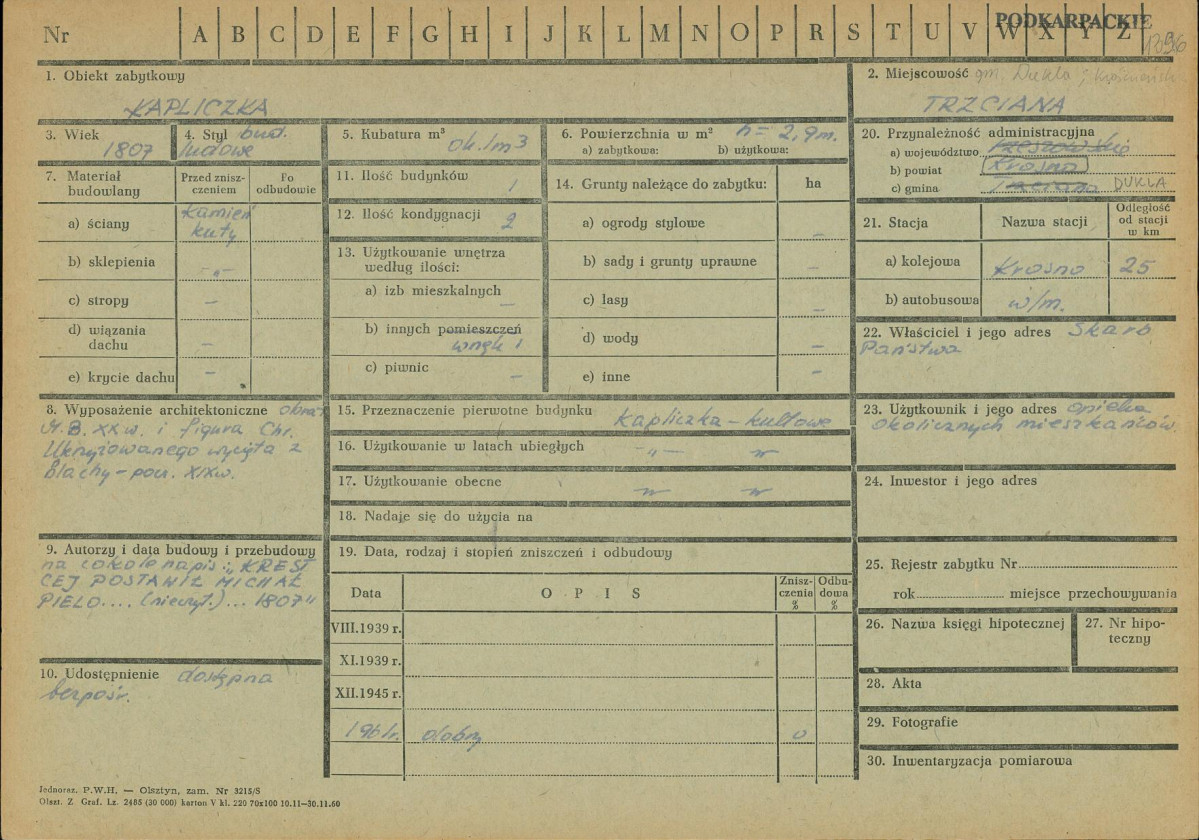 Nr A B C D E F G H I J K L M N O P R S T U V W X Y Z
PODKARPACKIE
1. Obiekt zabytkowy
KAPLICZKA
2. Miejscowość gm. Dukla
TRZCIANA
3. Wiek
1807
4. Styl bud.
ludowe
5. Kubatura m³
ok. 1m3
6. Powierzchnia w m² h = 2,9 m.
a) zabytkowa: b) użytkowa:
7. Materiał budowlany
Przed zniszczeniem
Po odbudowie
a) ściany
kamień
kuty
b) sklepienia
-„-
c) stropy –
d) wiązania
dachu –
e) krycie dachu –
8. Wyposażenie architektoniczne obraz
M.B. XX w. i figura Chr.
Ukrzyżowanego wycięta z
blachy – pocz. XIX w.
9. Autorzy i data budowy i przebudowy
na cokole napis: „KREST
CEJ POSTANIŁ MICHAŁ
PIELO.... (nieczyt.)... 1807"
10. Udostępnienie dostępna
bezpośr.
11. Ilość budynków 1
12. Ilość kondygnacji 2
13. Użytkowanie wnętrza
według ilości:
a) izb mieszkalnych –
b) innych pomieszczeń
wnęk 1
c) piwnic –
14. Grunty należące do zabytku: ha
a) ogrody stylowe –
b) sady i grunty uprawne –
c) lasy –
d) wody –
e) inne –
15. Przeznaczenie pierwotne budynku kapliczka – kultowe
16. Użytkowanie w latach ubiegłych -„- „
17. Użytkowanie obecne „ „
18. Nadaje się do użycia na
19. Data, rodzaj i stopień zniszczeń i odbudowy
Data OPIS Zniszczenia % Odbudowa %
VIII.1939 r.
XI.1939 r.
XII.1945 r.
1961r. dobry 0
20. Przynależność administracyjna
a) województwo rzeszowskie
b) powiat Krosno
c) gmina Trzciana DUKLA
21. Stacja Nazwa stacji Odległość od stacji w km
a) kolejowa Krosno 25
b) autobusowa w/m.
22. Właściciel i jego adres Skarb
Państwa
23. Użytkownik i jego adres opieka
okolicznych mieszkańców
24. Inwestor i jego adres
25. Rejestr zabytku Nr
rok miejsce przechowywania
26. Nazwa księgi hipotecznej
27. Nr hipoteczny
28. Akta
29. Fotografie
30. Inwentaryzacja pomiarowa
Jednoraz. P.W.H. — Olsztyn, zam. Nr 3215/S
Olszt. Z. Graf. Lz. 2485 (30 000) karton V kl. 220 70x100 10.11—30.11.60